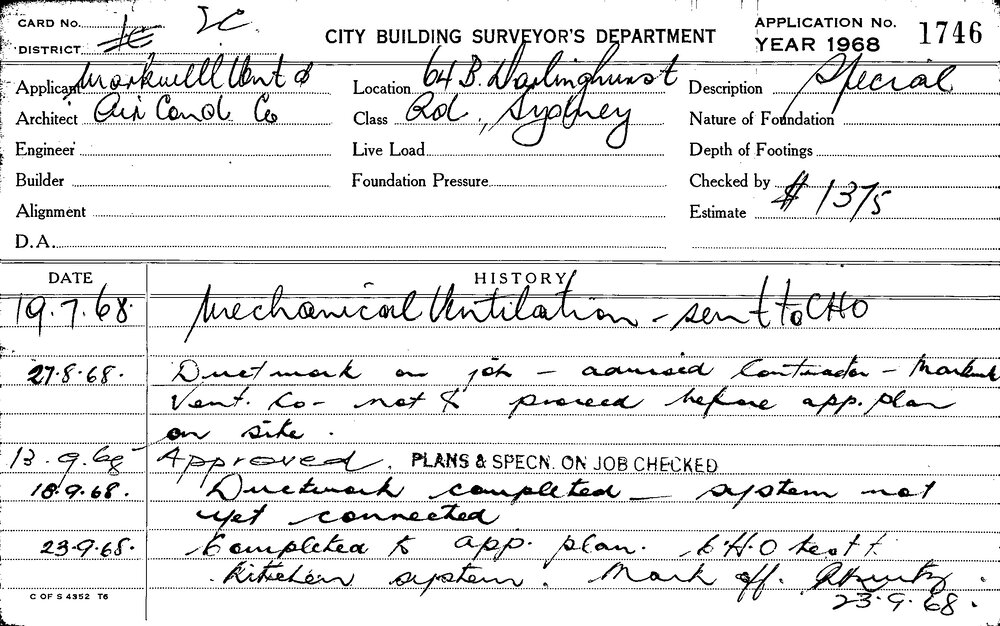 CARD No. IC
DISTRICT IC
CITY BUILDING SURVEYOR'S DEPARTMENT
APPLICATION No. 1746
YEAR 1968
Applicant Markwell Vent &
Architect Air Cond. Co
Engineer
Builder
Alignment
D.A.
Location 64 B. Darlinghurst
Class Rd., Sydney
Live Load
Foundation Pressure
Description Special
Nature of Foundation
Depth of Footings
Checked by
Estimate $ 1375
DATE HISTORY
19.7.68. Mechanical Ventilation - sent to CHO
27.8.68. Ductwork on job - advised Contractor - Markwell
Vent. Co - not to proceed before app. plan
on site.
13.9.68 Approved. PLANS & SPECN. ON JOB CHECKED
18.9.68. Ductwork completed - system not
yet connected
23.9.68. Completed to app. plan. C.H.O test
Kitchen system. Mark off.
23.9.68.
C OF S 4352 T6